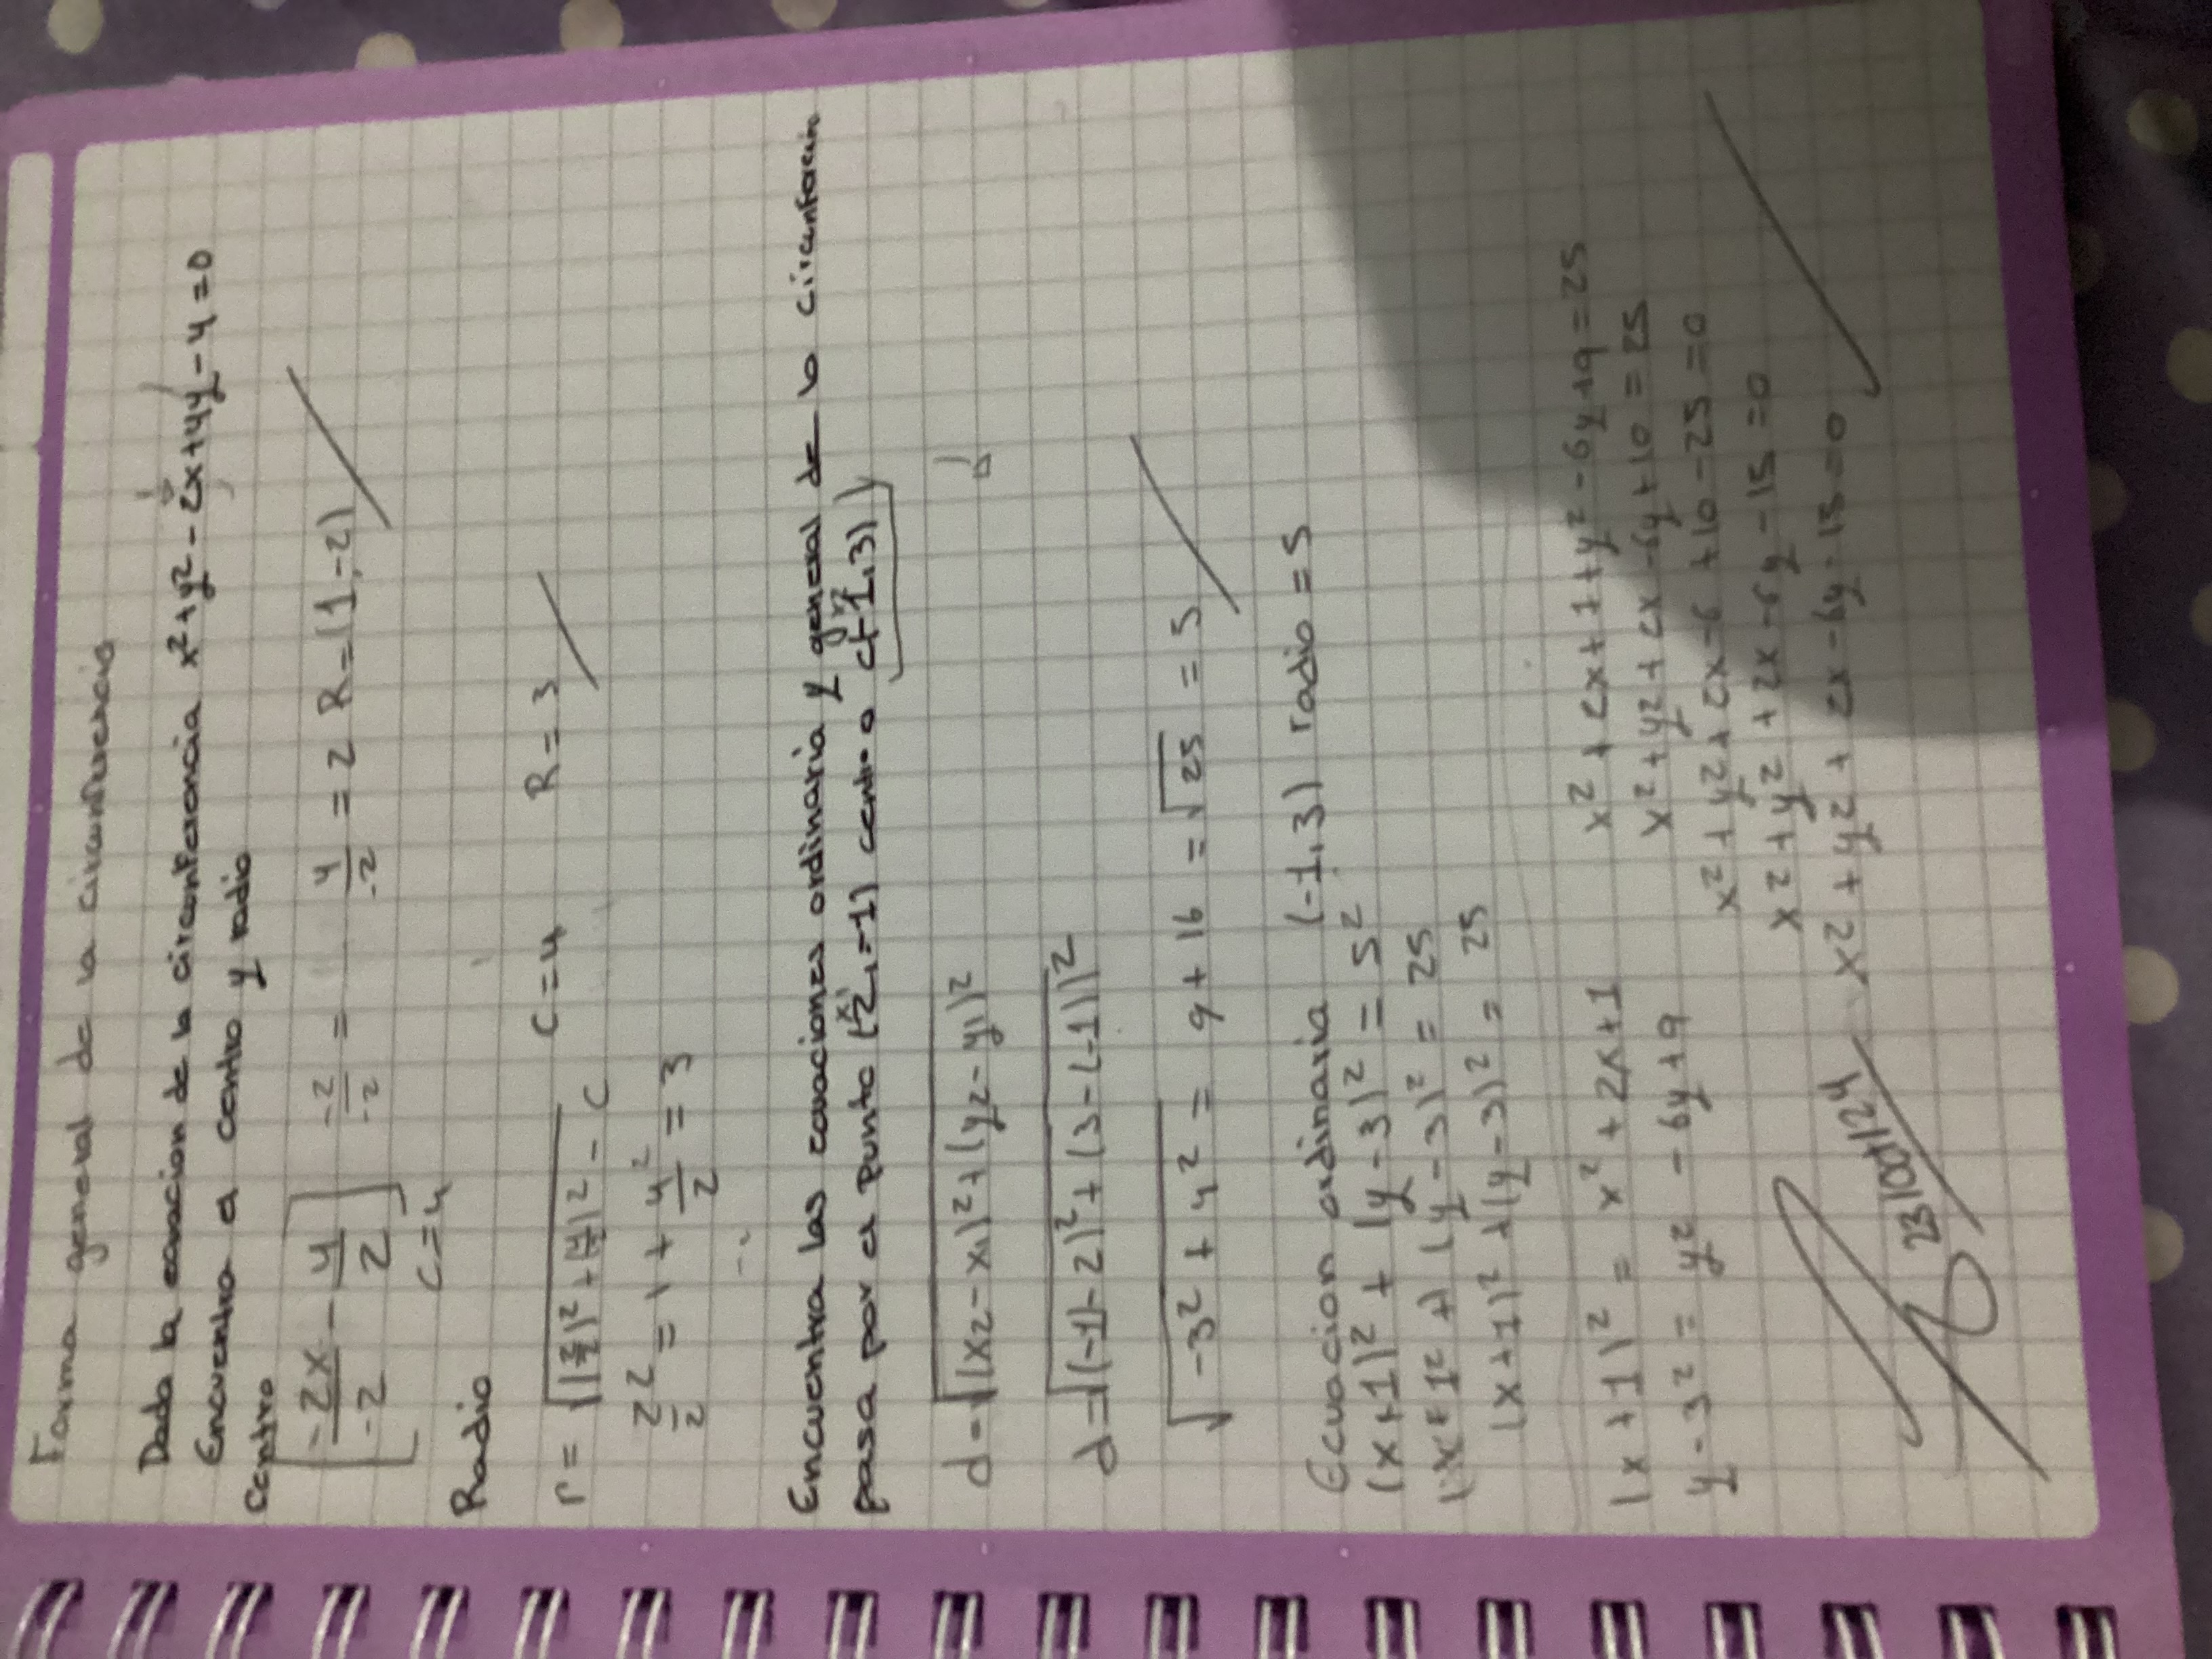 Forma general de la circunferencia
Dada la ecuacion de la circunferencia x²+y²-2x+4y-4=0
Encuentra el centro y radio
Centro
[-2x/-2 - 4/2] -2/-2 = 4/-2 = 2 R=(1,-2)
C=4
Radio
r = √(2/2)²+(4/2)² - C C=4 R=3
2²/2 = 1 + 4²/2 = 3
Encuentra las ecuaciones ordinaria y general de la circunferencia
pasa por el punto (2,-1) centro c(-1,3)
d=√(x2-x1)²+(y2-y1)²
d=√(-1)-2)²+(3-(-1))²
√-3²+4² = 9+16 = √25 = 5
Ecuacion ordinaria (-1,3) radio = 5
(x+1)² + (y-3)² = 5²
(y-3)² = 25
(x+1)² + (y-3)² = 25
(x+1)² = x²+2x+1 x²+2x+1+y²-6y+9=25
y-3² = y²-6y+9 x²+y²+2x-6y+10=25
x²+y²+2x-6+10-25=0
x²+y²+2x-6y-15=0
x²+y²+2x-6y-15=0
23/oct/24